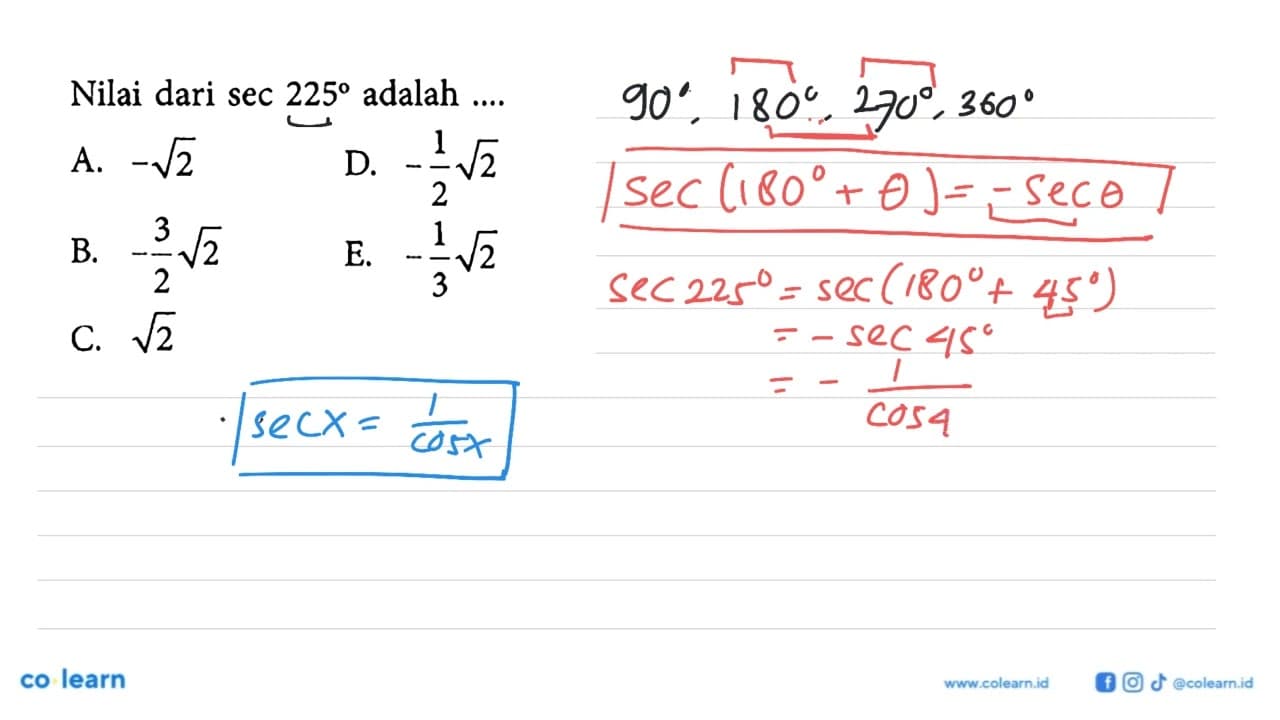 Nilai dari sec 225° adalah ....
A. -√2
B. -3/2 √2
C. √2
D. -1/2 √2
E. -1/3 √2
sec x = 1/cos x
90°, 180°, 270°, 360°
sec (180° + θ) = - sec θ
sec 225° = sec (180° + 45°)
= - sec 45°
= - 1/cos 4
co learn
www.colearn.id
@colearn.id